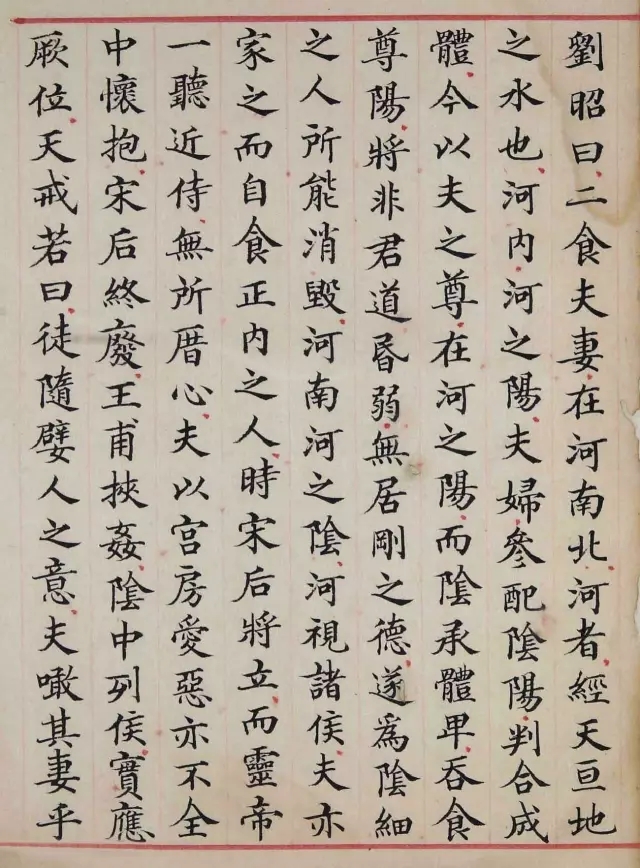 劉昭曰二食夫妻在河南北河者經天亘地
之水也河内河之陽夫婦參配陰陽判合成
體今以夫之尊在河之陽而陰承體卑吞食
尊陽將非君道昬弱無居剛之德遂為陰細
之人所能消毀河南河之陰河視諸侯夫亦
家之而自食正内之人時宋后將立而靈帝
一聽近侍無所厝心夫以宫房愛惡亦不全
中懷抱宋后終廢王甫挾姦陰中列侯實應
厥位天戒若曰徒隨嬖人之意夫噉其妻乎